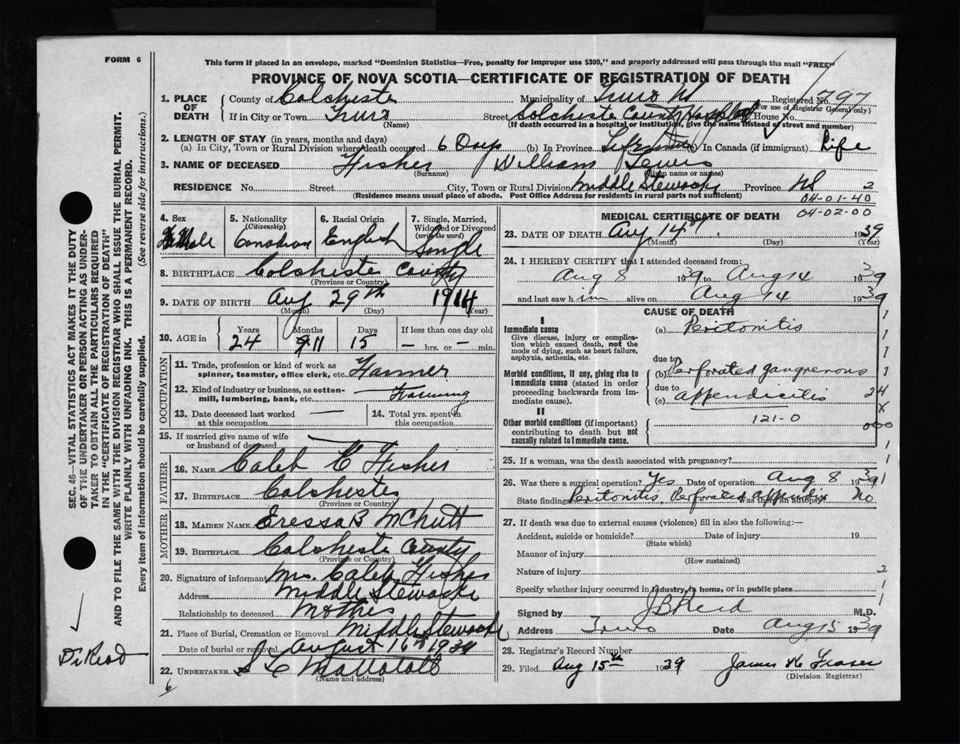 FORM 6
This form if placed in an envelope, marked "Dominion Statistics—Free, penalty for improper use $300," and properly addressed will pass through the mail "FREE"
PROVINCE OF NOVA SCOTIA—CERTIFICATE OF REGISTRATION OF DEATH
1. PLACE OF DEATH County of Colchester Municipality of Truro Registered No. 797
(For use of Registrar General only)
If in City or Town Truro Street Colchester County Hospital House No.
(Name) (If death occurred in a hospital or institution, give the name instead of street and number)
2. LENGTH OF STAY (in years, months and days)
(a) In City, Town or Rural Division where death occurred 6 Days (b) In Province Lifetime (c) In Canada (if immigrant) Life
3. NAME OF DECEASED Fisher William Lewis
(Surname) (Given name or names)
RESIDENCE No. Street City, Town or Rural Division Middle Stewiacke Province NS 2
(Residence means usual place of abode. Post Office Address for residents in rural parts not sufficient) 04-01-40
04-02-00
4. Sex Male
5. Nationality (Citizenship) Canadian
6. Racial Origin English
7. Single, Married, Widowed or Divorced (write the word) Single
8. BIRTHPLACE Colchester County
(Province or Country)
9. DATE OF BIRTH Aug 29th 1914
(Month) (Day) (Year)
10. AGE in Years Months Days If less than one day old
24 11 15 — hrs. or — min.
OCCUPATION
11. Trade, profession or kind of work as spinner, teamster, office clerk, etc. Farmer
12. Kind of industry or business, as cotton-mill, lumbering, bank, etc. Farming
13. Date deceased last worked at this occupation —
14. Total yrs. spent in this occupation
15. If married give name of wife or husband of deceased —
FATHER
16. NAME Caleb C Fisher
17. BIRTHPLACE Colchester
(Province or Country)
MOTHER
18. MAIDEN NAME McNutt
19. BIRTHPLACE Colchester County
(Province or Country)
20. Signature of informant Mrs. Caleb Fisher
Address Middle Stewiacke
Relationship to deceased Mother
21. Place of Burial, Cremation or Removal Middle Stewiacke
Date of burial or removal August 16th 1939
22. UNDERTAKER
(Name and address)
MEDICAL CERTIFICATE OF DEATH
23. DATE OF DEATH Aug 14th 1939
(Month) (Day) (Year)
24. I HEREBY CERTIFY that I attended deceased from
Aug 8 1939 to Aug 14 1939
and last saw him alive on Aug 14 1939
CAUSE OF DEATH
I
Immediate cause (a) Peritonitis
Give disease, injury or complication which caused death, not the mode of dying, such as heart failure, asphyxia, asthenia, etc.
due to
Morbid conditions, if any, giving rise to immediate cause (stated in order proceeding backwards from immediate cause).
(b) Perforated gangrenous
due to
(c) appendicitis
II
121-0
Other morbid conditions (if important) contributing to death but not causally related to immediate cause.
25. If a woman, was the death associated with pregnancy?
26. Was there a surgical operation? Yes Date of operation Aug 8 1939
State findings Peritonitis, Perforated appendix Was there an autopsy? No
27. If death was due to external causes (violence) fill in also the following:—
Accident, suicide or homicide? Date of injury 19
(State which)
Manner of injury
(How sustained)
Nature of injury
Specify whether injury occurred in industry, in home, or in public place
Signed by J B Reid M.D.
Address Truro Date Aug 15 1939
28. Registrar's Record Number
29. Filed Aug 15th 1939 James K Fraser
(Division Registrar)
SEC. 46—VITAL STATISTICS ACT MAKES IT THE DUTY
OF THE UNDERTAKER OR PERSON ACTING AS UNDERTAKER
TO OBTAIN ALL THE PARTICULARS REQUIRED
IN THE "CERTIFICATE OF REGISTRATION OF DEATH"
AND TO FILE THE SAME WITH THE DIVISION REGISTRAR WHO SHALL ISSUE THE BURIAL PERMIT.
WRITE PLAINLY WITH UNFADING INK. THIS IS A PERMANENT RECORD.
Every item of information should be carefully supplied. (See reverse side for instructions.)
Dr Read
6